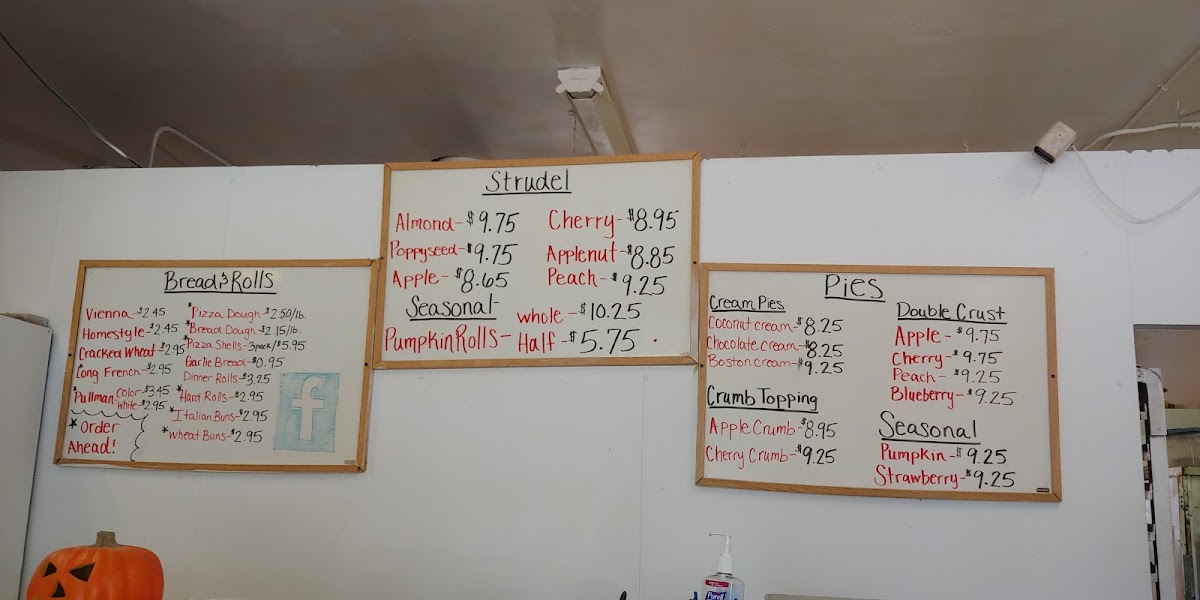 Bread & Rolls
Vienna-$2.45
Homestyle-$2.45
Cracked Wheat-$2.95
*Long French-$2.95
*Pullman Color-$3.45
White-$2.95
*Order
Ahead!
*Pizza Dough-$2.50/lb.
*Bread Dough-$2.15/lb.
*Pizza Shells-3pack/$5.95
Garlic Bread-$0.95
Dinner Rolls-$3.25
*Hard Rolls-$2.95
*Italian Buns-$2.95
*Wheat Buns-$2.95
f
Strudel
Almond-$9.75
Poppyseed-$9.75
Apple-$8.65
Cherry-$8.95
Applenut-$8.85
Peach-$9.25
Seasonal
Pumpkin Rolls-
whole-$10.25
Half-$5.75
Pies
Cream Pies
Coconut cream-$8.25
Chocolate cream-$8.25
Boston cream-$9.25
Crumb Topping
Apple Crumb-$8.95
Cherry Crumb-$9.25
Double Crust
Apple-$9.75
Cherry-$9.75
Peach-$9.25
Blueberry-$9.25
Seasonal
Pumpkin-$9.25
Strawberry-$9.25
Purell